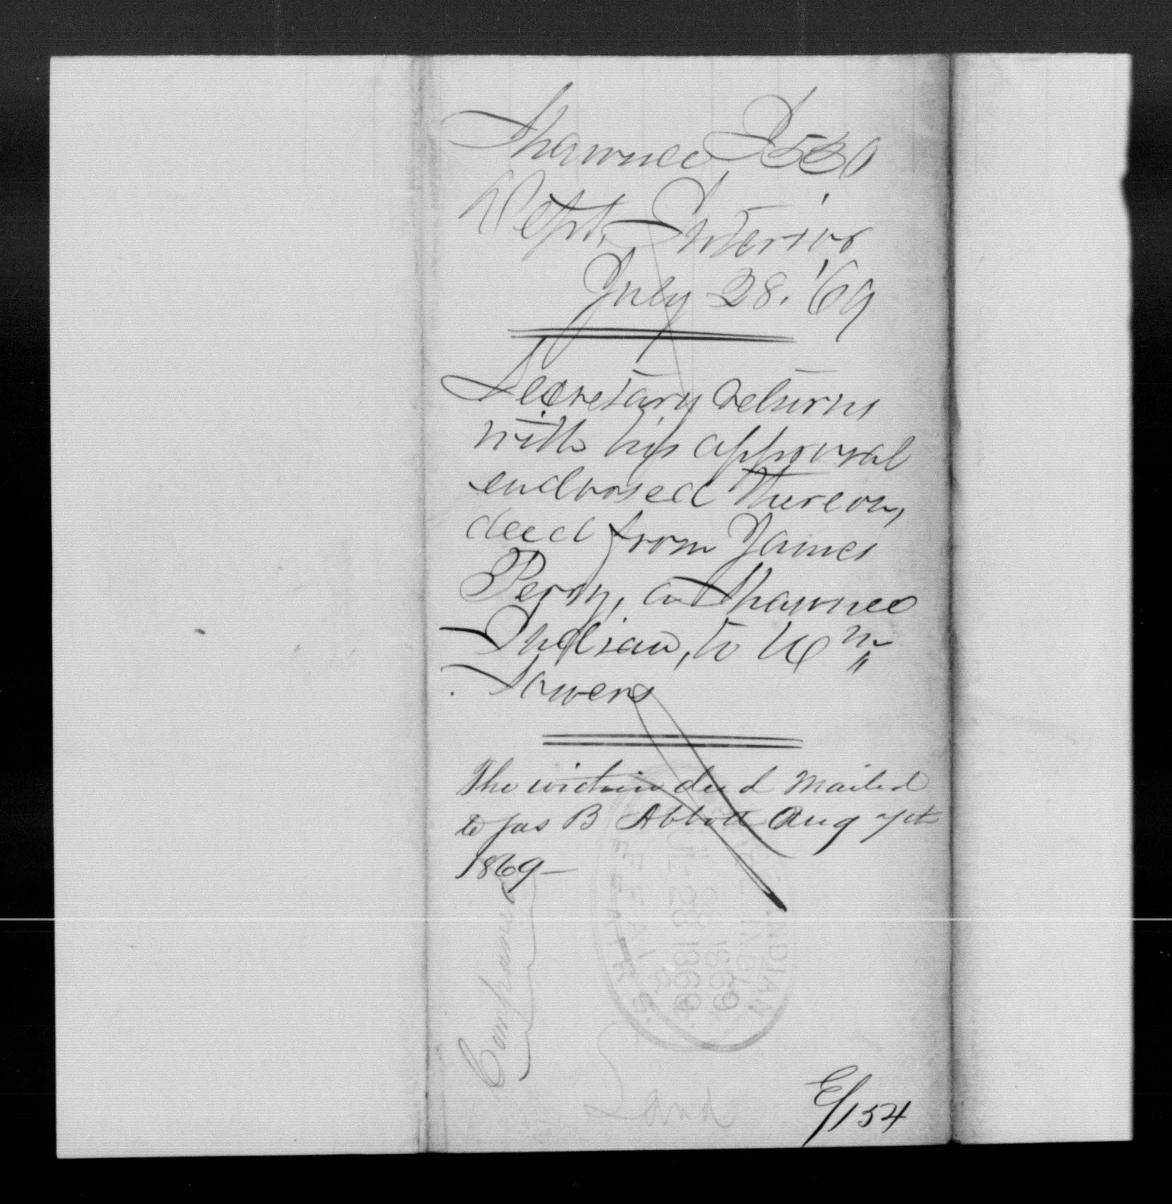 Shawnee I 530
Dept. Interior
July 28. '69
Secretary returns
with his approval
endorsed thereon,
deed from James
Perry, a Shawnee
Indian, to Wm
Sowers
The within deed mailed
to Jas B Abbott Aug 7th
1869 —
INDIAN
AFFAIRS.
JL 28 1869
1869
Land
E/154